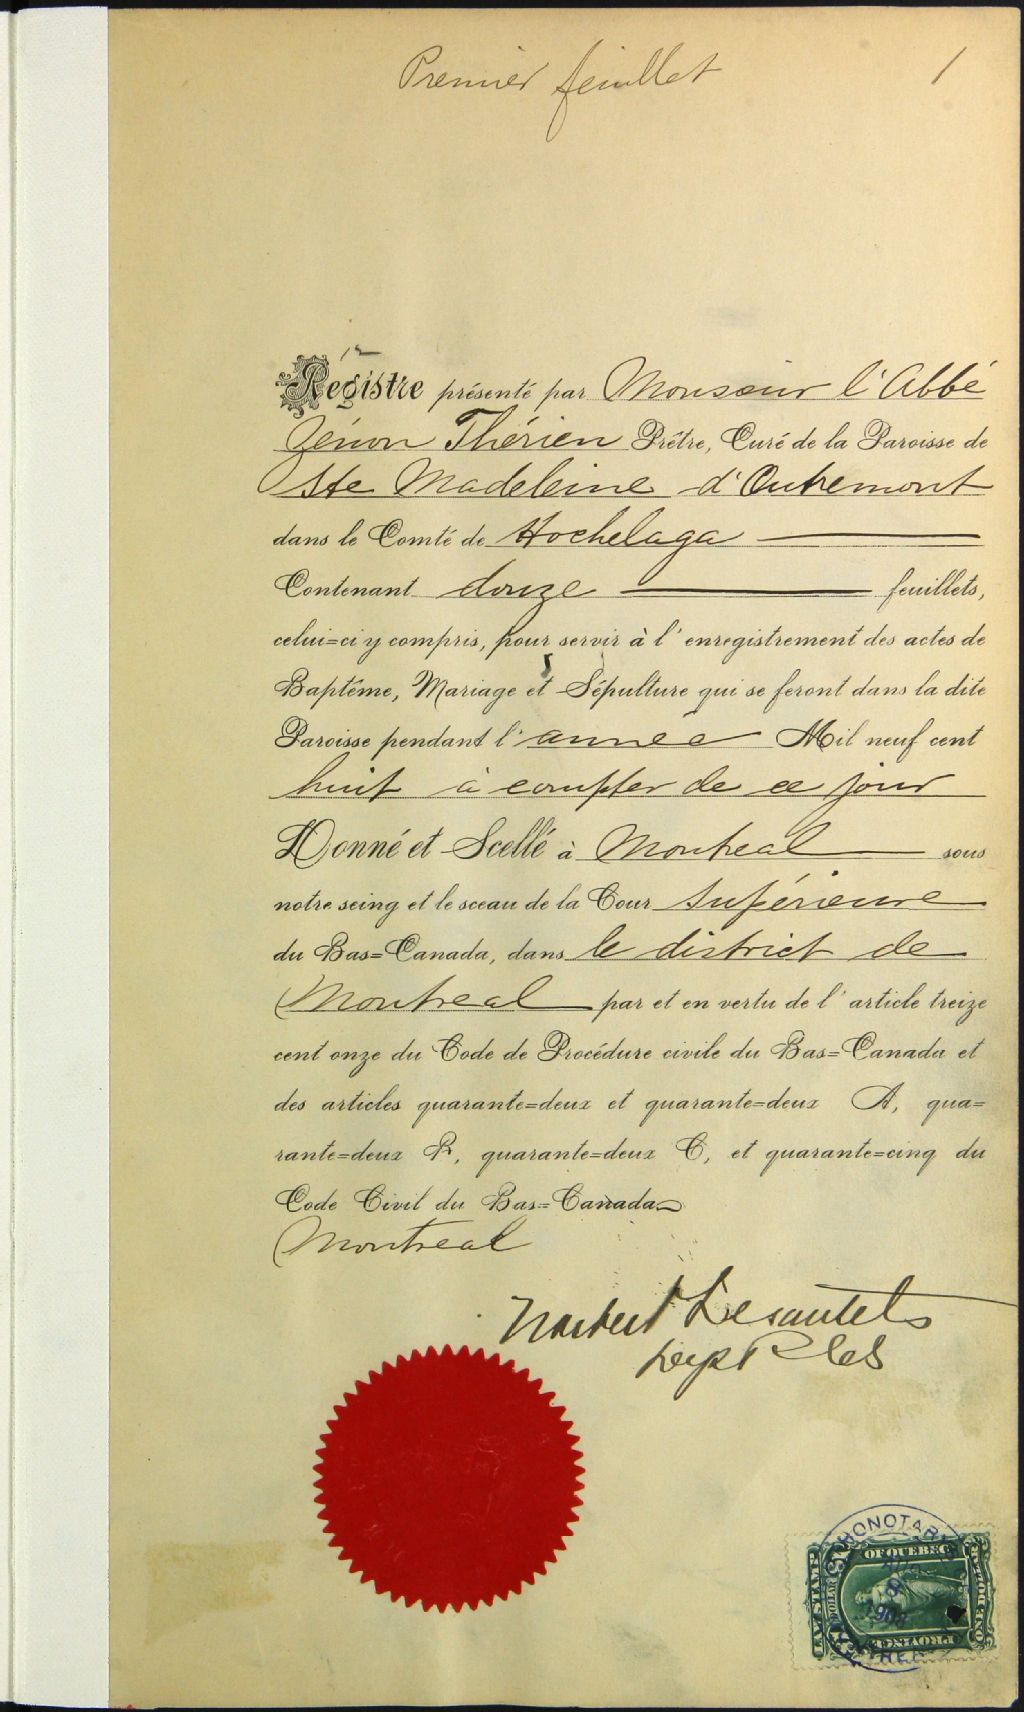 Premier feuillet 1
Registre présenté par Monseur l'Abbé
Zénon Thérien Prêtre, Curé de la Paroisse de
Ste Madeleine d'Outremont
dans le Comté de Hochelaga
Contenant douze feuillets,
celui=ci y compris, pour servir à l'enregistrement des actes de
Baptême, Mariage et Sépulture qui se feront dans la dite
Paroisse pendant l'année Mil neuf cent
huit à compter de ce jour
Donné et Scellé à Montreal sous
notre seing et le sceau de la Cour Supérieure
du Bas=Canada, dans le district de
Montreal par et en vertu de l'article treize
cent onze du Code de Procédure civile du Bas=Canada et
des articles quarante=deux et quarante=deux A, qua=
rante=deux B, quarante=deux C, et quarante=cinq du
Code Civil du Bas=Canada
Montreal
Norbert Desautels
Dep P
LAW STAMP
OF QUEBEC
PROVINCE
ONE DOLLAR
1908